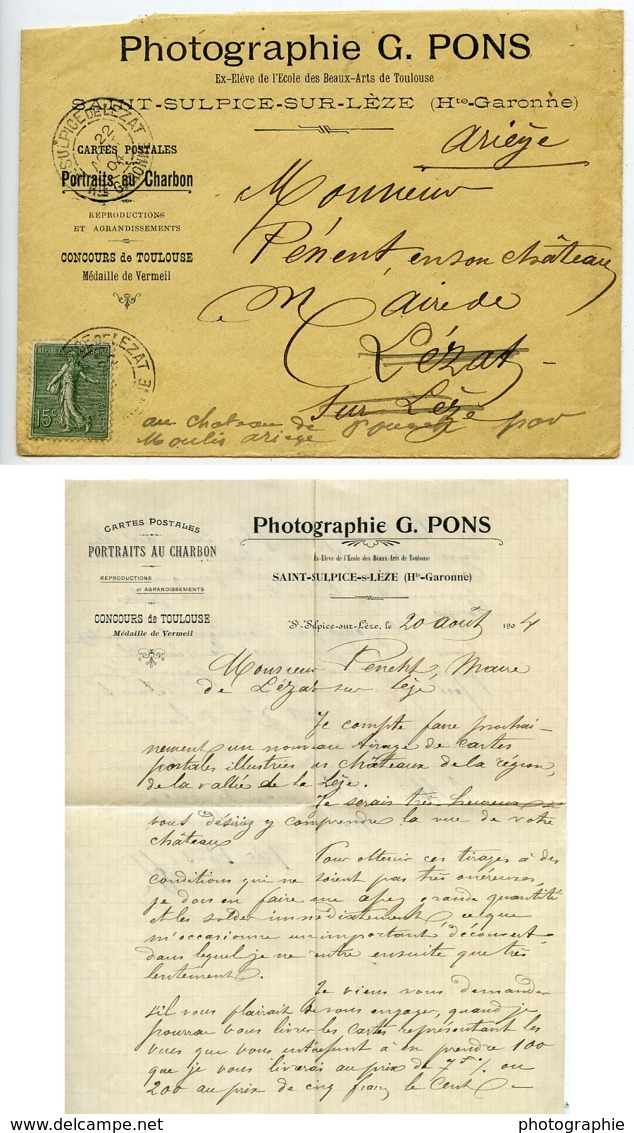 Photographie G. PONS
Ex-Elève de l'Ecole des Beaux-Arts de Toulouse
SAINT-SULPICE-SUR-LÈZE (Hte-Garonne)
SULPICE DE LEZAT
22
CARTES POSTALES
Portraits au Charbon
REPRODUCTIONS
ET AGRANDISSEMENTS
CONCOURS de TOULOUSE
Médaille de Vermeil
Ariège
Monsieur
Pénent, en son château
Maire de
Lézat
sur Lèze
DE LEZAT
15c
au chateau de par
Moulis ariege
CARTES POSTALES
PORTRAITS AU CHARBON
REPRODUCTIONS
et AGRANDISSEMENTS
CONCOURS de TOULOUSE
Médaille de Vermeil
Photographie G. PONS
Ex-Elève de l'Ecole des Beaux-Arts de Toulouse
SAINT-SULPICE-s-LÈZE (Hte-Garonne)
St-Sulpice-sur-Lèze, le 20 août 1904
Monsieur Penent, Maire
de Lézat sur Lèze,
Je compte faire prochai-
nement un nouveau tirage de cartes
postales illustrées des châteaux de la région,
de la vallée de la Lèze.
Je serais très heureux si
vous désirez y comprendre la vue de votre
château
Pour obtenir ces tirages à des
conditions qui ne soient pas très onéreuses,
je dois en faire une assez grande quantité
et les solder immédiatement, ce que
m'occasionne un important découvert
dans lequel je ne rentre ensuite que très
lentement.
Je viens vous demander
s'il vous plairait de vous engager, quand je
pourrai vous livrer les cartes représentant les
vues que vous intéressent à en prendre 100
que je vous livrerais au prix de 7f % ou
200 au prix de cinq francs le cent
delcampe.net
photographie